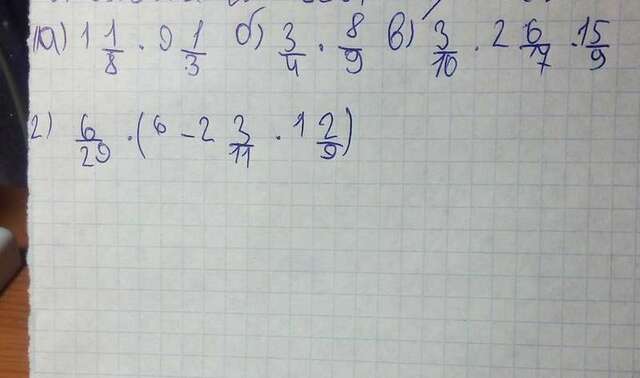 а) 1 1/8 · 9 1/3 б) 3/4 · 8/9 в) 3/10 · 2 6/17 · 15/9
2) 6/29 · (6 - 2 3/11 · 1 2/9)